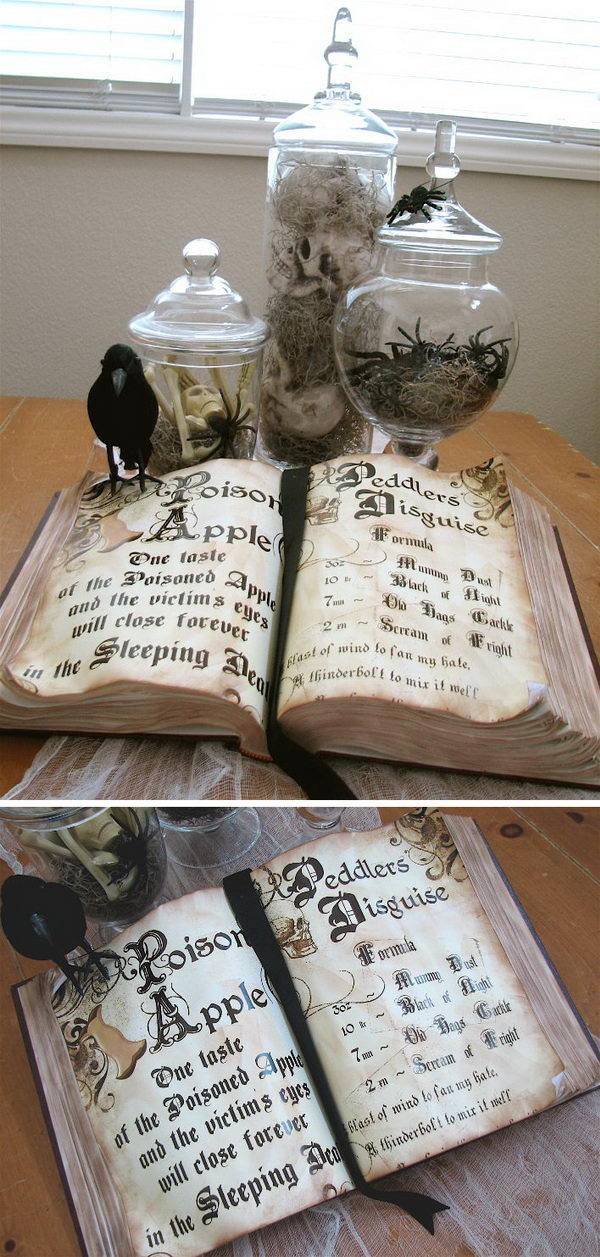 Poison
Apple
One taste
of the Poisoned Apple
and the victims eyes
will close forever
in the Sleeping Deat
Peddlers'
Disguise
Formula
3oz ~ Mummy Dust
10 ~ Black of Night
7 ~ Old Hags Cackle
2 ~ Scream of Fright
blast of wind to fan my hate,
A thinderbolt to mix it well
Poison
Apple
One taste
of the Poisoned Apple
and the victims eyes
will close forever
in the Sleeping Dea
Peddlers'
Disguise
Formula
3oz ~ Mummy Dust
10 ~ Black of Night
7 ~ Old Hags Cackle
2 ~ Scream of Fright
blast of wind to fan my hate,
A thinderbolt to mix it well